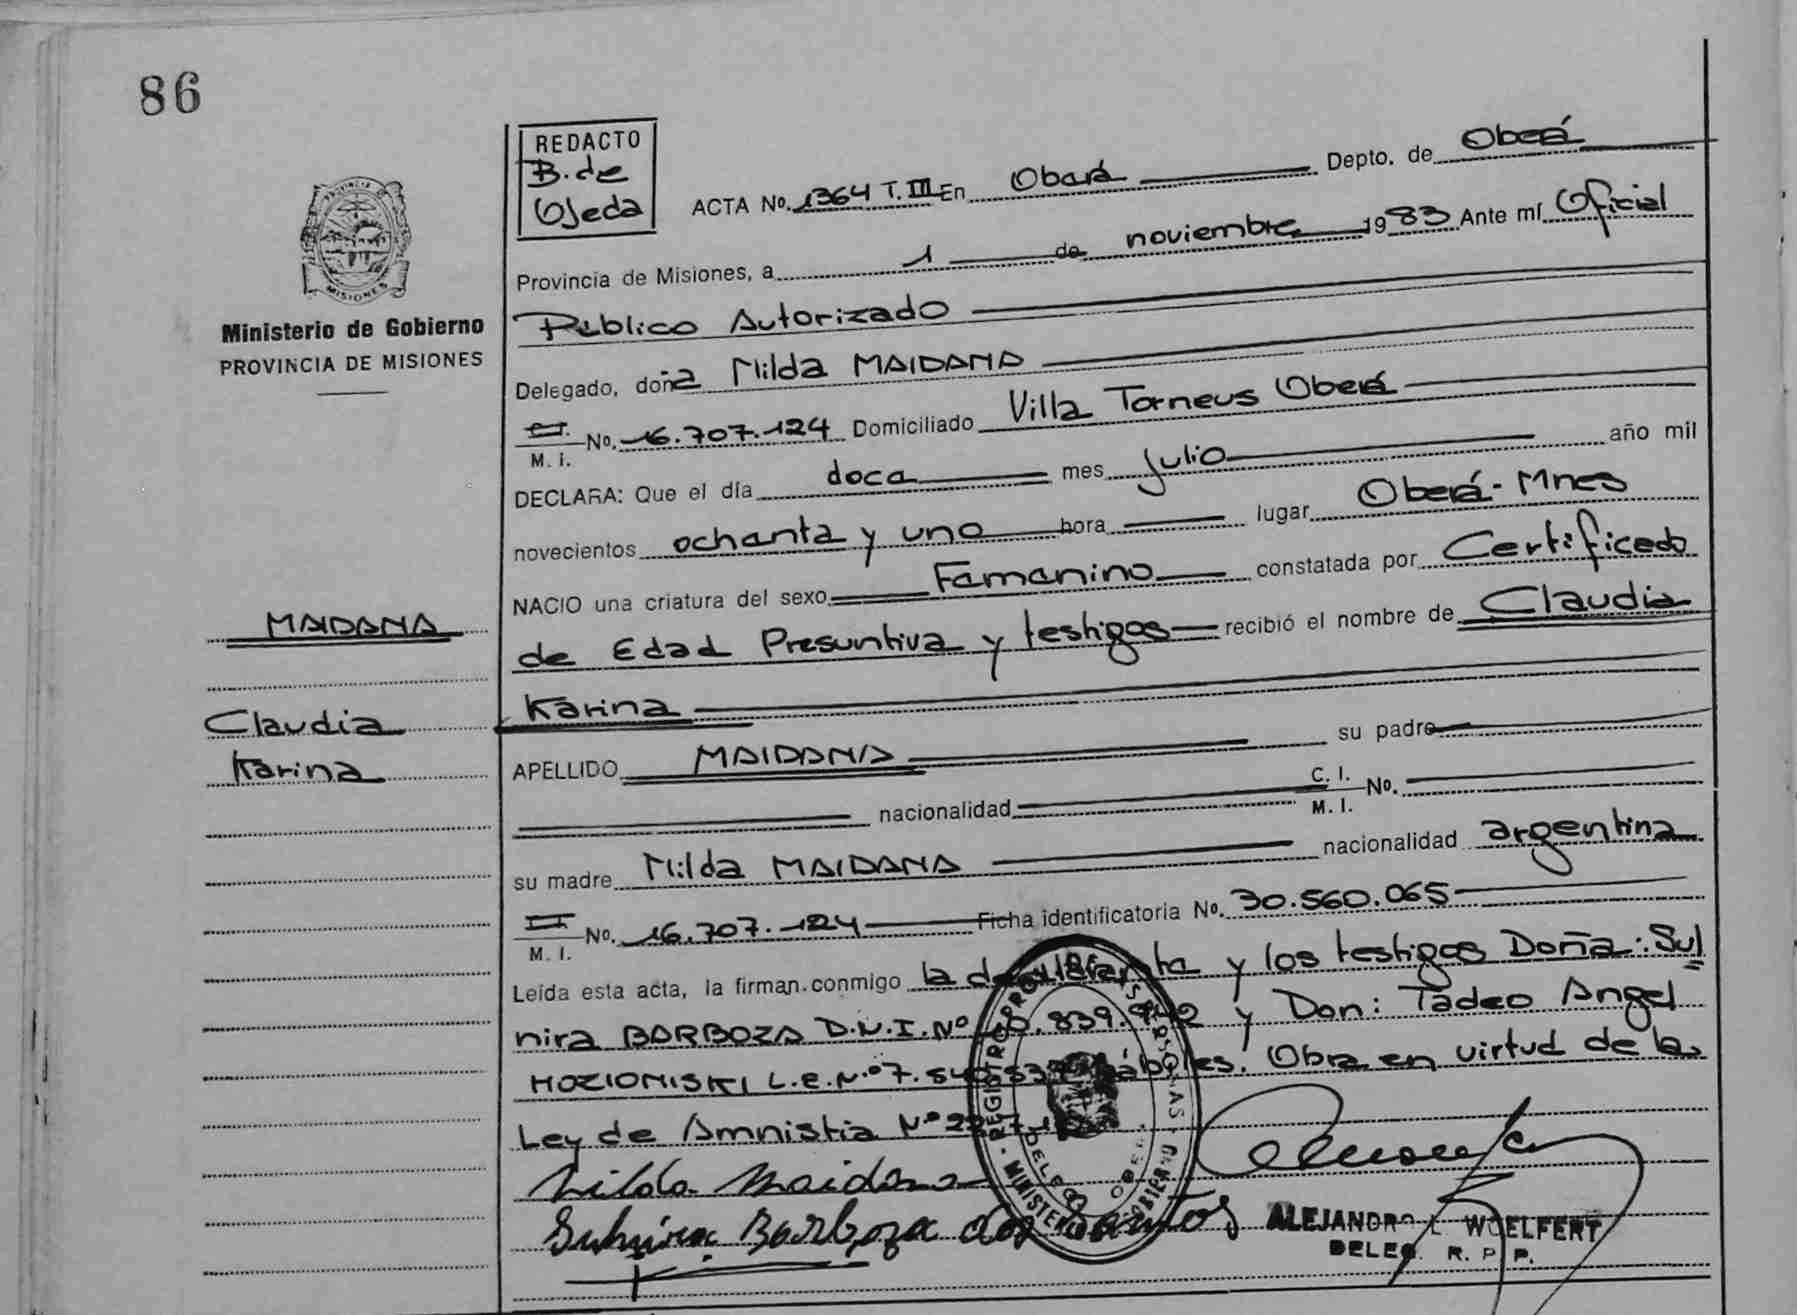 86
REDACTO
B. de
Ojeda
ACTA No. 1364 T. III En Oberá Depto. de Oberá
Provincia de Misiones, a 1 de noviembre 1983 Ante mí Oficial
PROVINCIA
MISIONES
Ministerio de Gobierno
PROVINCIA DE MISIONES
Público Autorizado
Delegado, doña Nilda MAIDANA
M. I. No. 16.707.124 Domiciliado Villa Torneus Oberá
DECLARA: Que el día doce mes Julio año mil
novecientos ochenta y uno hora lugar Oberá - Mnes
NACIO una criatura del sexo Femenino constatada por Certificado
MAIDANA
de Edad Presuntiva y testigos recibió el nombre de Claudia
Claudia
Karina
Karina
APELLIDO MAIDANA su padre
nacionalidad C. I. M. I. No.
su madre Nilda MAIDANA nacionalidad argentina
M. I. No. 16.707.124 Ficha identificatoria No. 30.560.065
Leída esta acta, la firman conmigo la declarante y los testigos Doña: Sul
nira BARBOZA D.N.I. Nº y Don: Tadeo Angel
L.e.Nº 7. hábiles. Obra en virtud de la
Ley de Amnistia Nº
Nilda Maidana
Sulnira Barboza dos Santos
REGISTRO PROV. DE LAS PERSONAS
MINISTERIO GOBIERNO
ALEJANDRO L WOELFERT
DELEG. R. P. P.